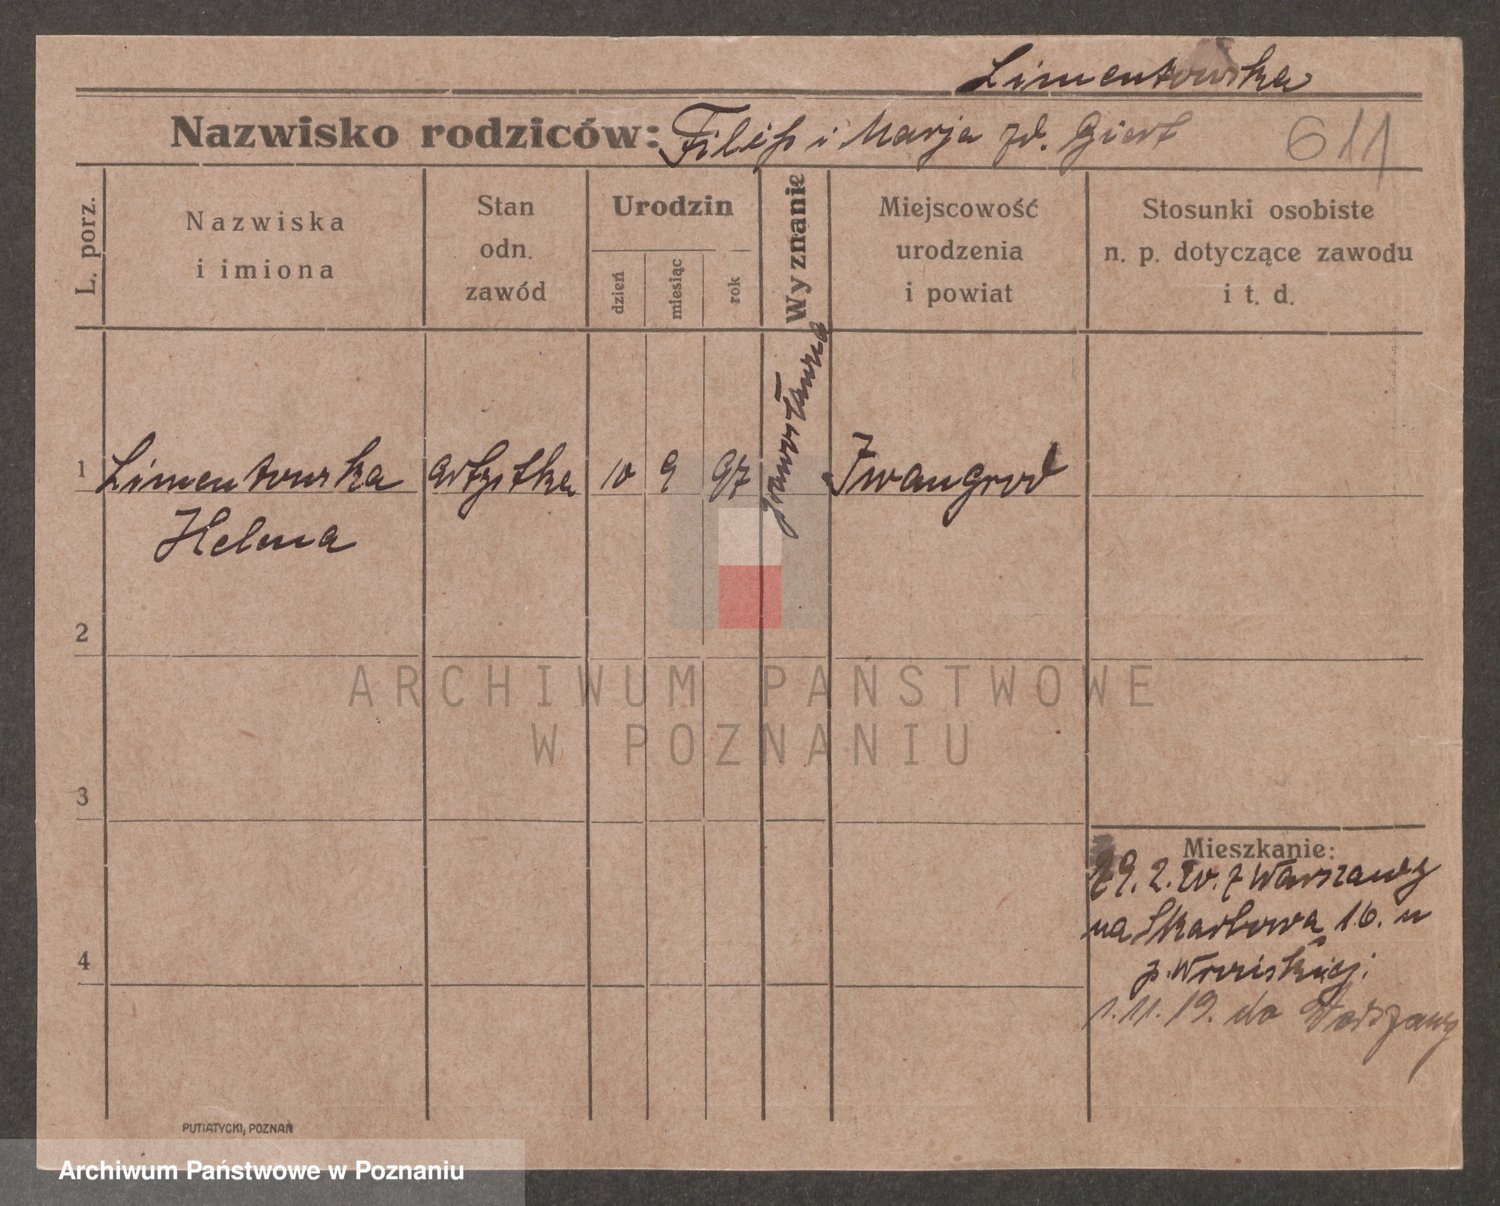 Limentowska
Nazwisko rodziców: Filip i Marja zd. Giert
611
L. porz.
Nazwiska
i imiona
Stan
odn.
zawód
Urodzin
dzień
miesiąc
rok
Wyznanie
Miejscowość
urodzenia
i powiat
Stosunki osobiste
n. p. dotyczące zawodu
i t. d.
1
Limentowska
Helena
artystka
10
9
97
prawosławna
Iwangrod
2
3
4
Mieszkanie:
29. 2. 20. z Warszawy
na Skarbowa 16. u
p.
1. 11. 19. do Warszawy
PUTIATYCKI, POZNAŃ
ARCHIWUM PAŃSTWOWE
W POZNANIU
Archiwum Państwowe w Poznaniu